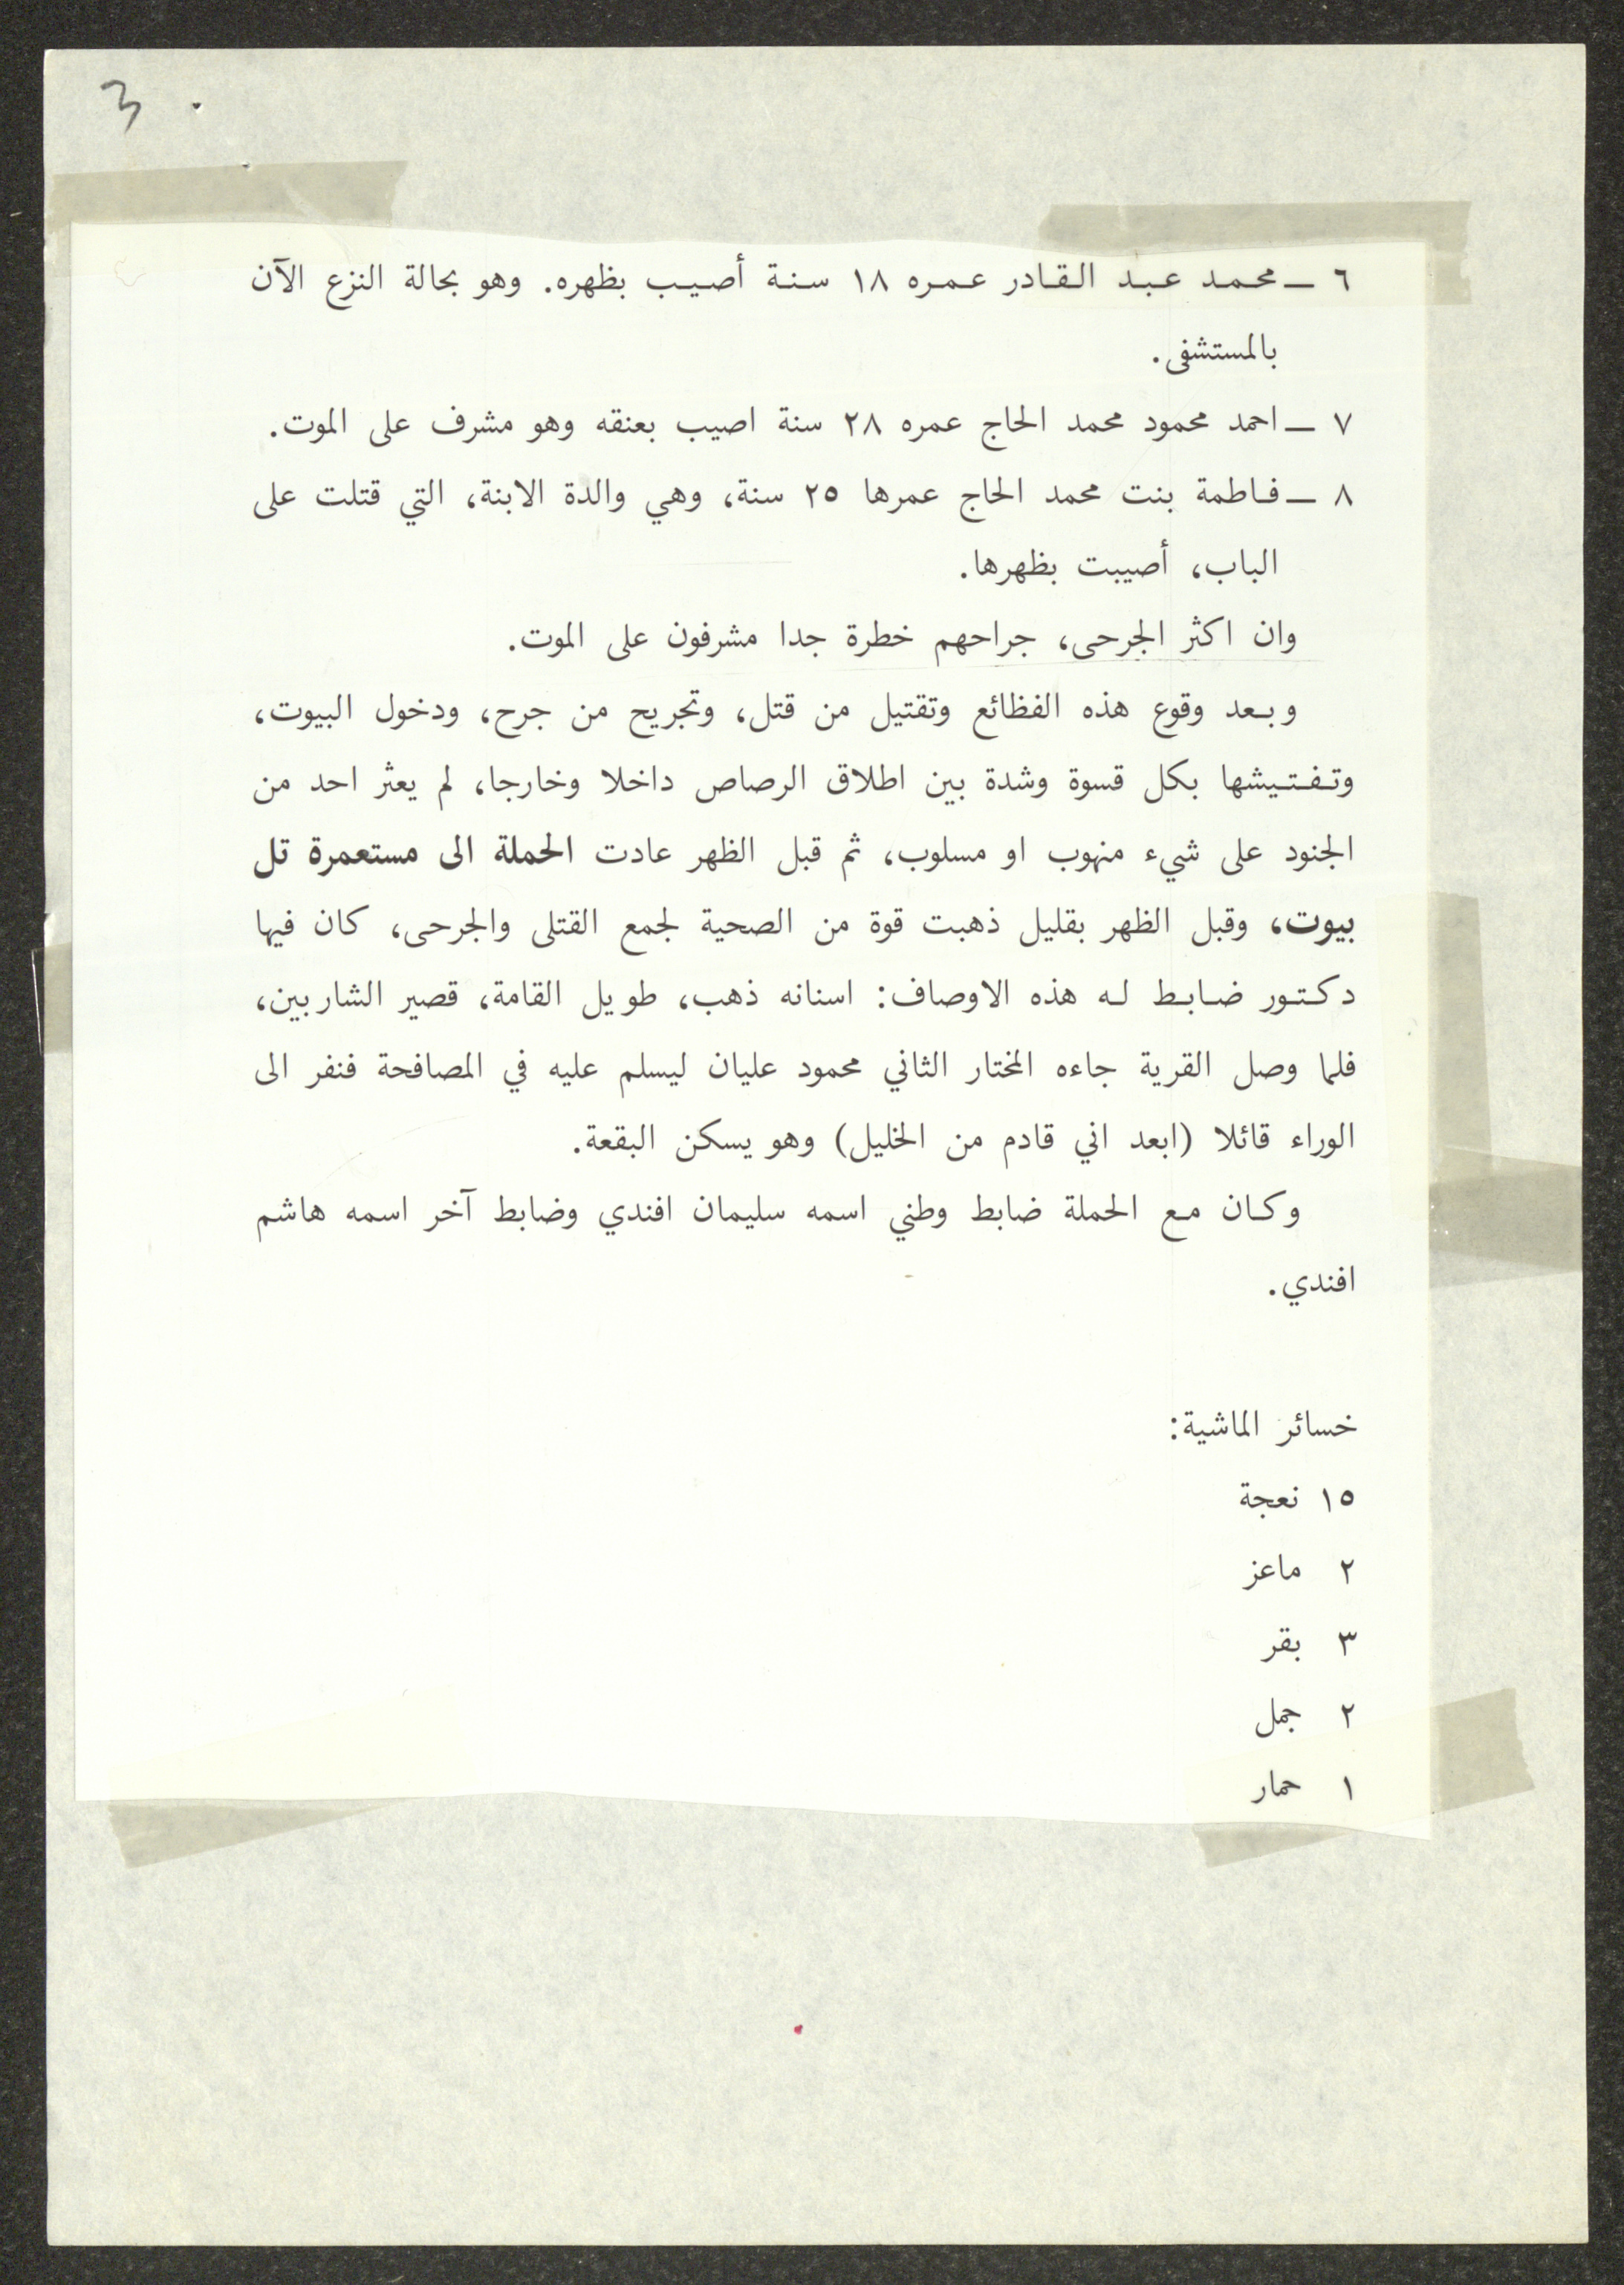 3
٦ ــ محمد عبد القادر عمره ١٨ سنة أصيب بظهره. وهو بحالة النزع الآن
بالمستشفى.
٧ ــ احمد محمود محمد الحاج عمره ٢٨ سنة اصيب بعنقه وهو مشرف على الموت.
٨ ــ فاطمة بنت محمد الحاج عمرها ٢٥ سنة، وهي والدة الابنة، التي قتلت على
الباب، أصيبت بظهرها.
وان اكثر الجرحى، جراحهم خطرة جدا مشرفون على الموت.
وبعد وقوع هذه الفظائع وتقتيل من قتل، وتجريح من جرح، ودخول البيوت،
وتفتيشها بكل قسوة وشدة بين اطلاق الرصاص داخلا وخارجا، لم يعثر احد من
الجنود على شيء منهوب او مسلوب، ثم قبل الظهر عادت الحملة الى مستعمرة تل
بيوت، وقبل الظهر بقليل ذهبت قوة من الصحية لجمع القتلى والجرحى، كان فيها
دكتور ضابط له هذه الاوصاف: اسنانه ذهب، طويل القامة، قصير الشاربين،
فلما وصل القرية جاءه المختار الثاني محمود عليان ليسلم عليه في المصافحة فنفر الى
الوراء قائلا (ابعد اني قادم من الخليل) وهو يسكن البقعة.
وكان مع الحملة ضابط وطني اسمه سليمان افندي وضابط آخر اسمه هاشم
افندي.
خسائر الماشية:
١٥ نعجة
٢ ماعز
٣ بقر
٢ جمل
١ حمار